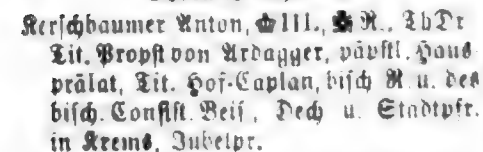 Kerschbaumer Anton, III., R., ThDr
Tit. Propst von Ardagger, päpstl. Haus
prälat, Tit. Hof-Caplan, bisch R. u. des
bisch. Consist. Beis, Dech u. Stadtpfr.
in Krems, Jubelpr.